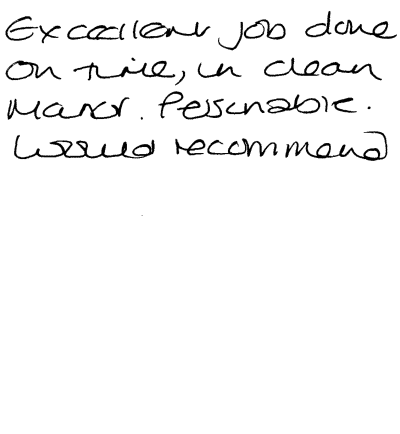 Excellent job done
on time, in clean
manor. Personable.
Would recommend